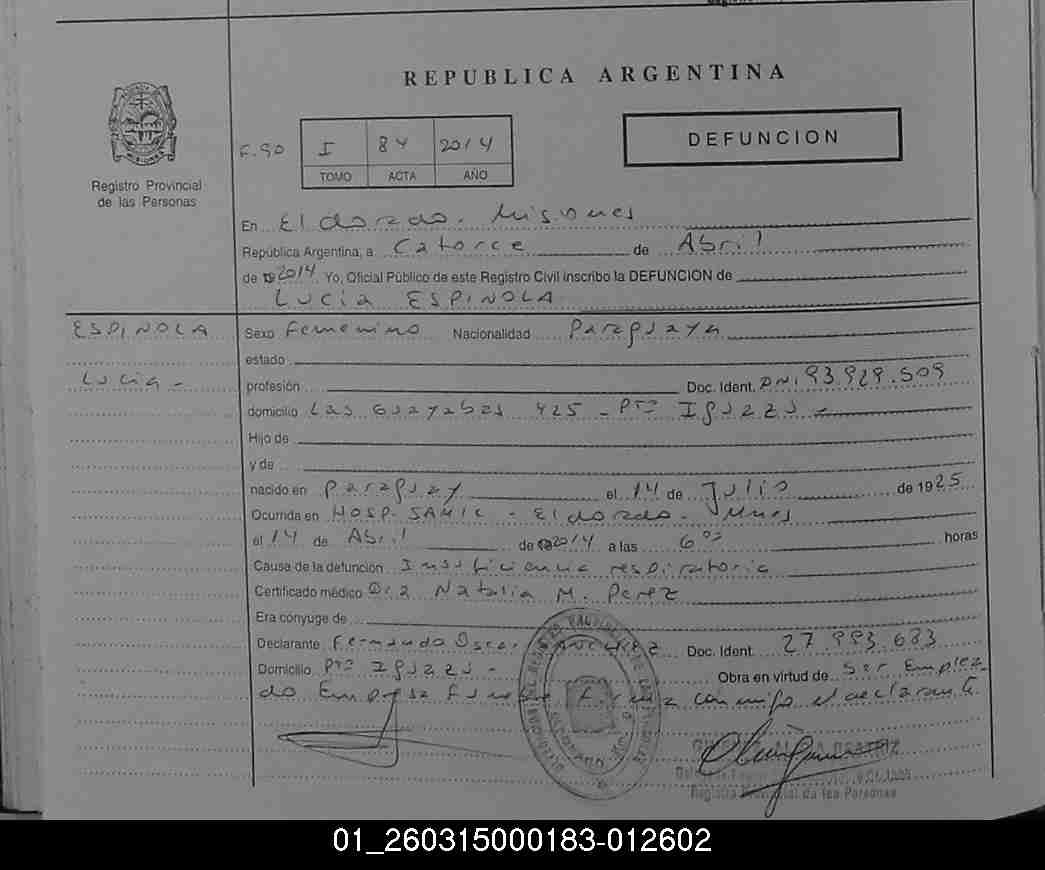 REPUBLICA ARGENTINA
Registro Provincial
de las Personas
MISIONES
F.90
I 84 2014
TOMO ACTA AÑO
DEFUNCION
En Eldorado. Misiones
República Argentina, a Catorce de Abril
de 2014 Yo, Oficial Público de este Registro Civil inscribo la DEFUNCION de
Lucia ESPINOLA
ESPINOLA
Lucia -
Sexo Femenino Nacionalidad Paraguaya
estado
profesión Doc. Ident. DNI 93.929.509
domicilio Las Guayabas 425 - Pto Iguazu -
Hijo de
y de
nacido en Paraguay el 14 de Julio de 1925
Ocurrida en HOSP. SAMIC - Eldorado. Mnes
el 14 de Abril de 2014 a las 6 00 horas
Causa de la defunción Insuficiencia respiratoria
Certificado médico Dra Natalia M. Perez
Era cónyuge de
Declarante Fernando Oscar Doc. Ident. 27 993.683
Domicilio Pto Iguazu - Obra en virtud de Ser Emplea-
do Empresa Funebre Firma conmigo el declarante.
BEATRIZ
Registro Provincial de las Personas
01_260315000183-012602